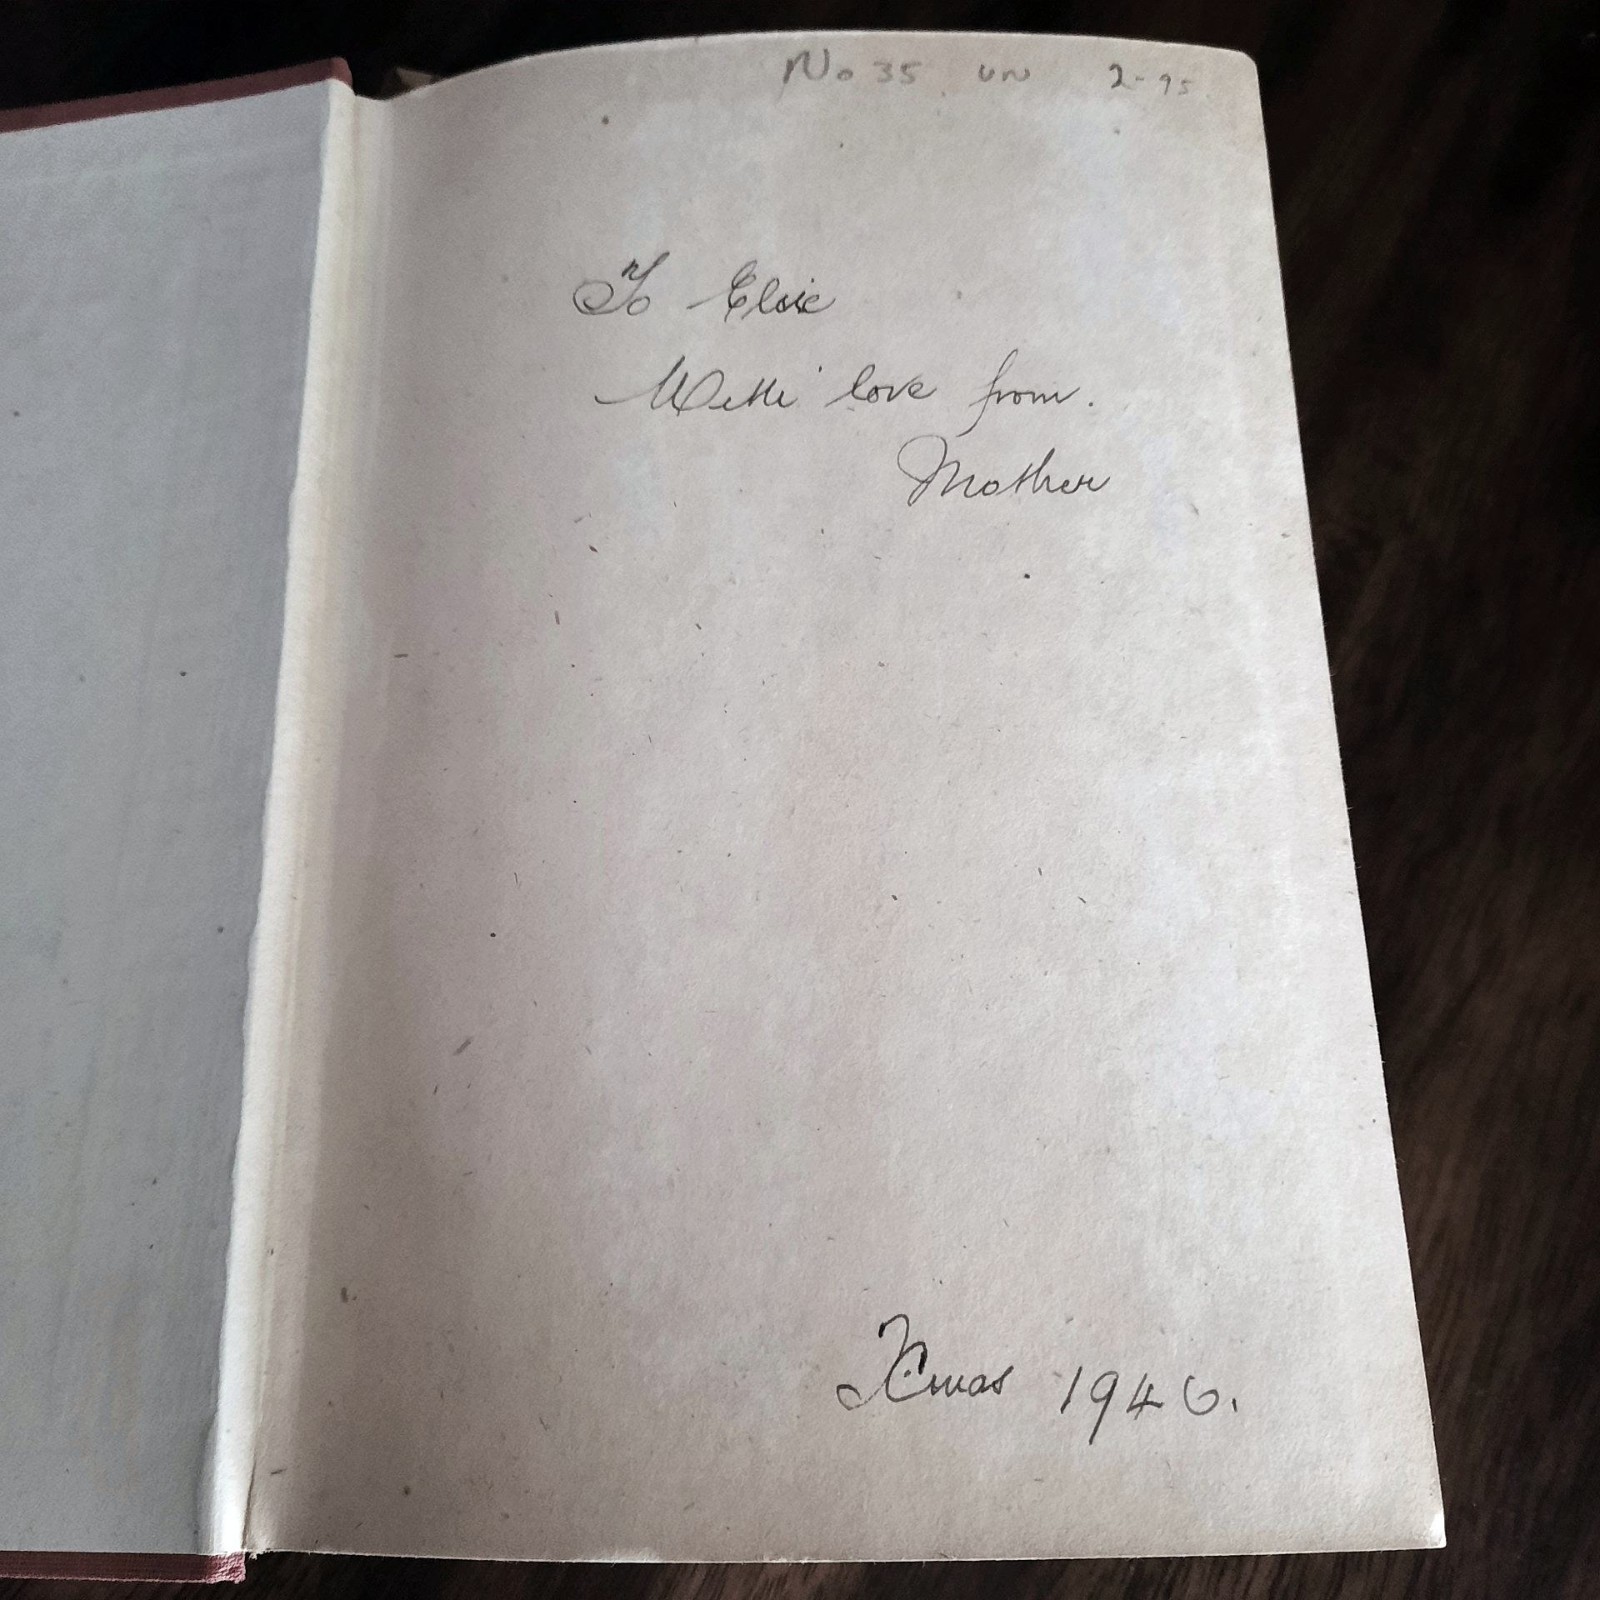 No 35 UN 2-95
To Elsie
With love from.
Mother
Xmas 1946.